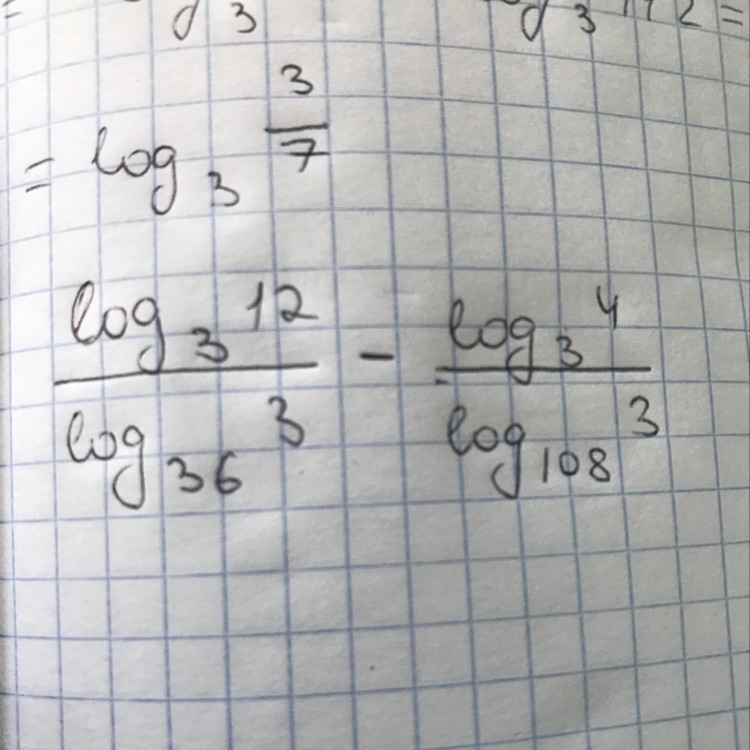 = log₃ 3/7
log₃ 12 / log₃₆ 3 - log₃ 4 / log₁₀₈ 3